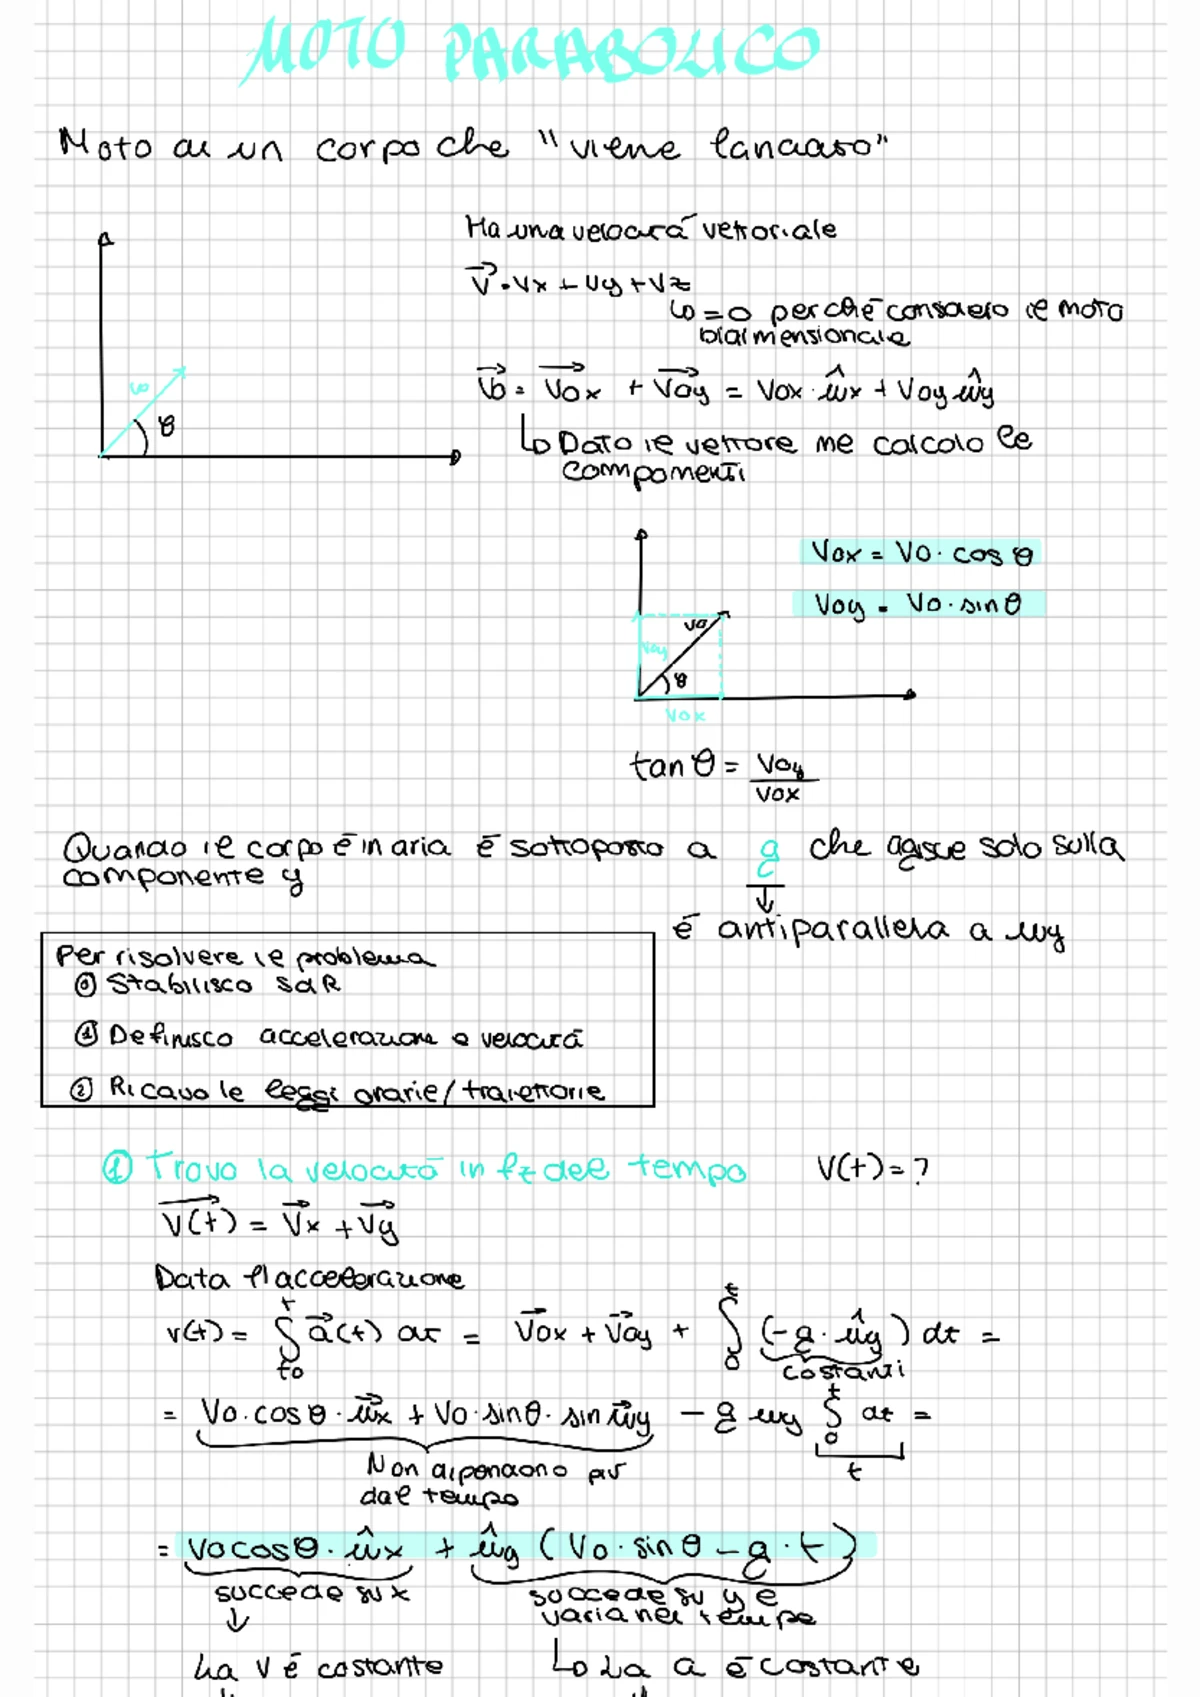 MOTO PARABOLICO
Moto di un corpo che "viene lanciato"
Ha una velocità vettoriale
V = Vx + Vy + Vz
↳ = 0 perché considero il moto
bidimensionale
V0 = V0x + V0y = V0x · ûx + V0y ûy
↳ Dato il vettore me calcolo le
componenti
V0
θ
V0x = V0 · cos θ
V0y = V0 · sin θ
V0
V0y
θ
V0x
tan θ = V0y / V0x
Quando il corpo é in aria é sottoposto a g che agisce solo sulla
componente y
↓
é antiparallela a uy
Per risolvere il problema
⓪ Stabilisco SdR
① Definisco accelerazione e velocità
② Ricavo le leggi orarie/traiettorie
① Trovo la velocità in fz del tempo V(t) = ?
V(t) = Vx + Vy
Data l'accelerazione
v(t) = ∫t0^t a(t) dt = V0x + V0y + ∫0^t (-g · ûy) dt =
costanti
= V0 · cos θ · ux + V0 · sin θ · sin uy - g uy ∫0^t dt =
Non dipendono più
dal tempo
t
= V0 cos θ · ûx + ûy (V0 · sin θ - g · t)
succede su x
succede su y e
varia nel tempo
↓
La V é costante
↳ La a é costante